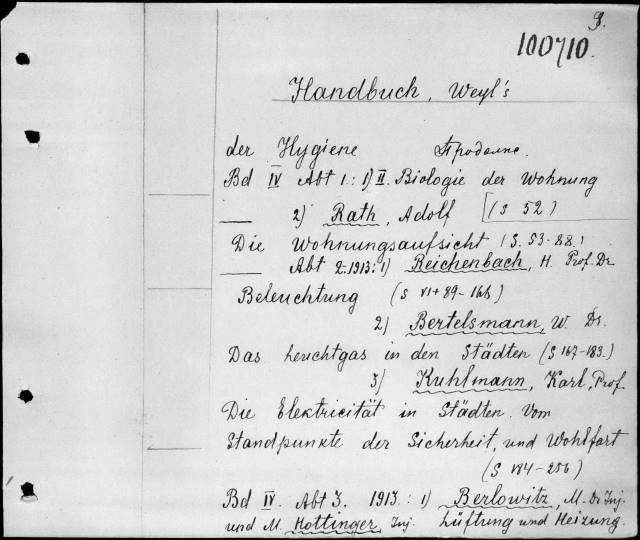 9.
100710.
Handbuch, Weyl's
der Hygiene
Bd IV Abt 1.: 1) II. Biologie der Wohnung
2) Rath, Adolf [(S 52)
Die Wohnungsaufsicht (S. 53-88.)
Abt 2. 1913: 1) Reichenbach, H. Prof. Dr
Beleuchtung (S VI + 89-166)
2) Bertelsmann, W. Dr.
Das Leuchtgas in den Städten (S 167-183.)
3) Kuhlmann, Karl, Prof.
Die Elektricität in Städten. Vom
Standpunkte der Sicherheit, und Wohlfart
(S 184-256)
Bd IV. Abt 3. 1913.: 1) Berlowitz, M. Dr Inj.
und M. Hottinger, Inj. Lüftung und Heizung.